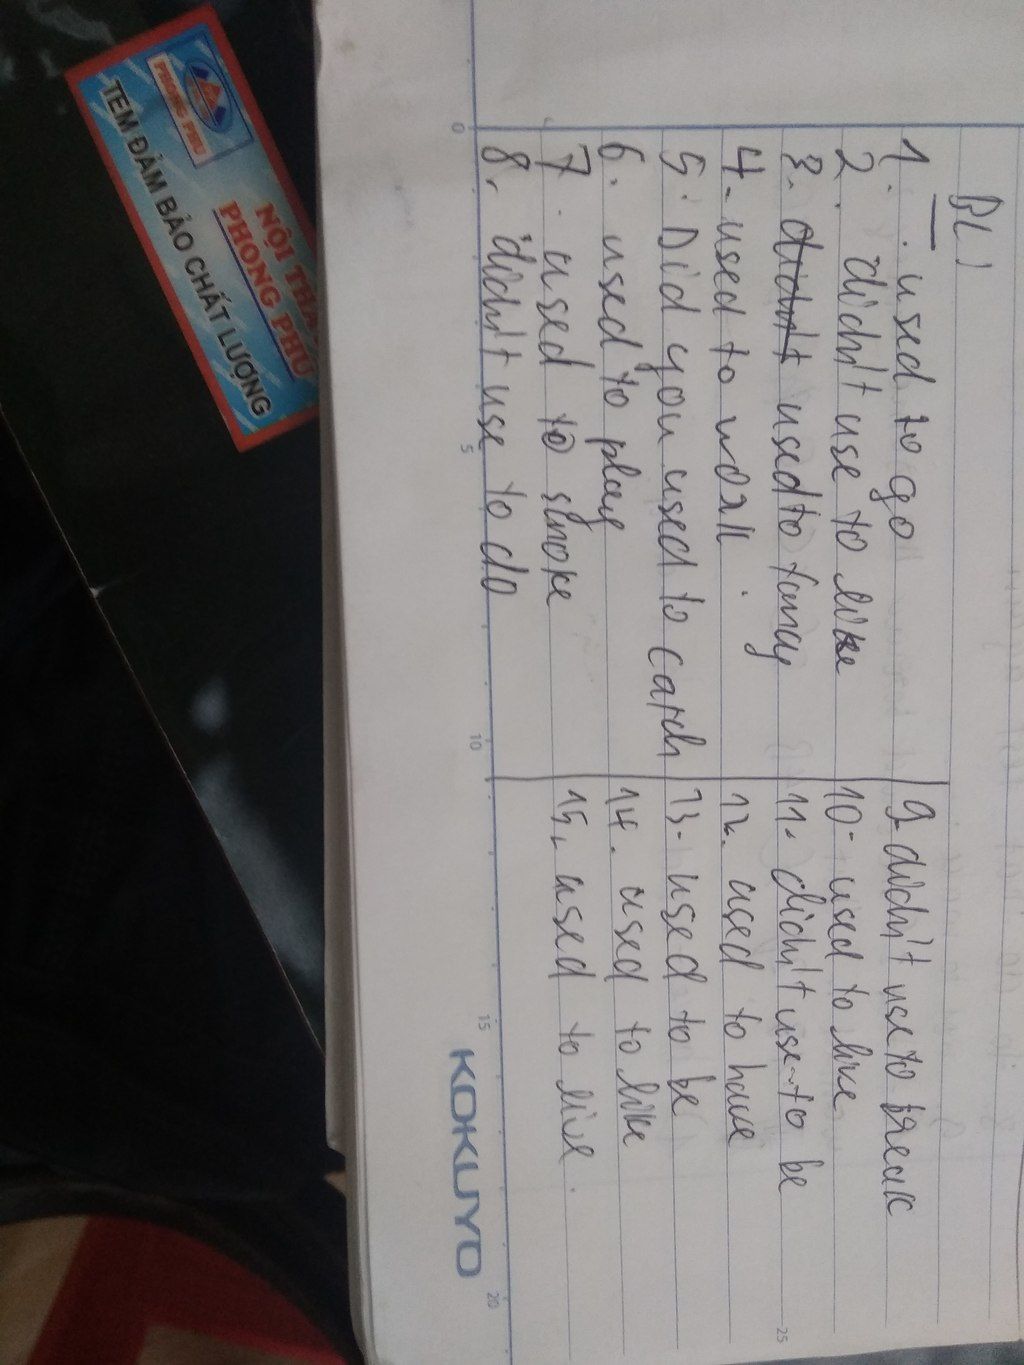 BL)
1. used to go
2. didn't use to like
3. didn't used to fancy
4. used to work.
5. Did you used to catch
6. used to play
7. used to smoke
8. didn't use to do
9. didn't use to break
10. used to live
11. didn't use to be
12. used to have
13. used to be
14. used to like
15. used to live.
0
5
10
15
20
25
KOKUYO
PHONG PHÚ
NỘI THẤ
PHONG PHÚ
TEM ĐẢM BẢO CHẤT LƯỢNG